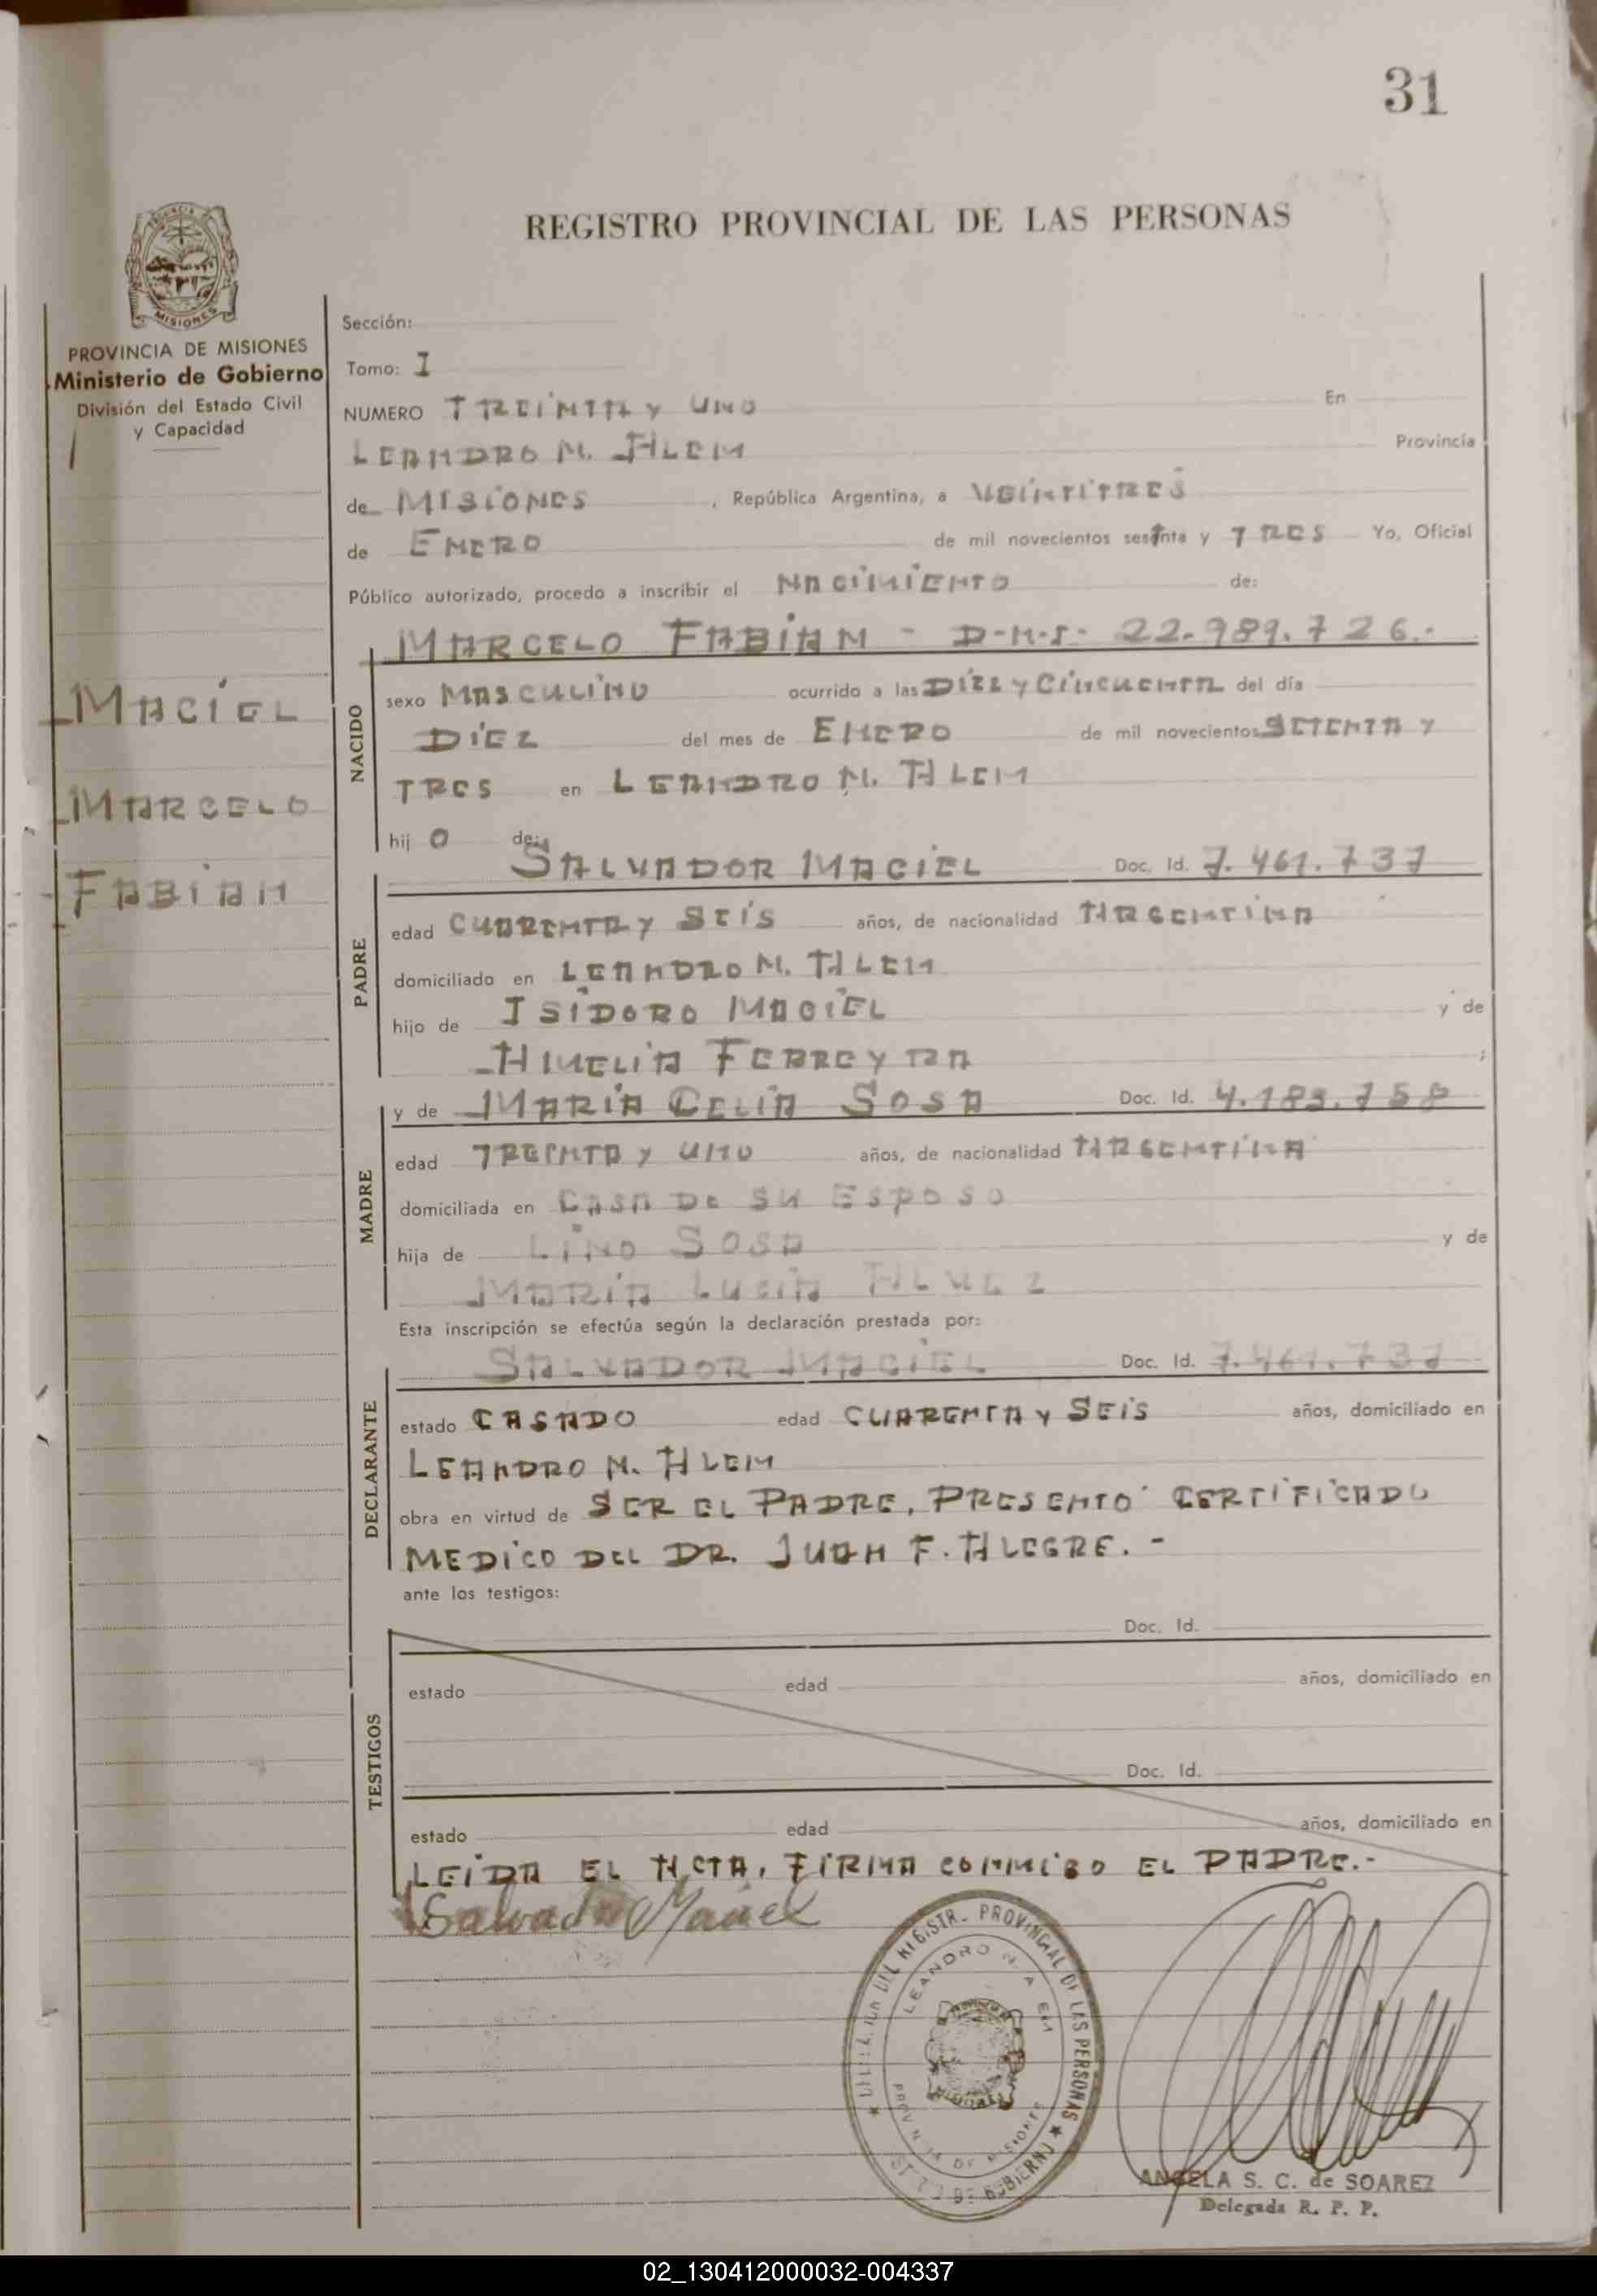 31
REGISTRO PROVINCIAL DE LAS PERSONAS
MISIONES
PROVINCIA DE MISIONES
Ministerio de Gobierno
División del Estado Civil
y Capacidad
MACIEL
MARCELO
FABIAN
Sección:
Tomo: I
NUMERO TREINTA Y UNO En
LEANDRO N. ALEM Provincia
de MISIONES , República Argentina, a VEINTITRES
de ENERO de mil novecientos setenta y TRES Yo, Oficial
Público autorizado, procedo a inscribir el NACIMIENTO de:
MARCELO FABIAN - D-N-I- 22.989.726.-
NACIDO
sexo MASCULINO ocurrido a las DIEZ Y CINCUENTA del día
DIEZ del mes de ENERO de mil novecientos SETENTA Y
TRES en LEANDRO N. ALEM
hij O de:
SALVADOR MACIEL Doc. Id. 7.461.737
PADRE
edad CUARENTA Y SEIS años, de nacionalidad ARGENTINA
domiciliado en LEANDRO N. ALEM
hijo de ISIDORO MACIEL y de
FERREYRA ;
y de MARIA CELIA SOSA Doc. Id. 4.183.758
MADRE
edad TREINTA Y UNO años, de nacionalidad ARGENTINA
domiciliada en CASA DE SU ESPOSO
hija de LINO SOSA y de
MARIA LUCIA ALVEZ
Esta inscripción se efectúa según la declaración prestada por:
SALVADOR MACIEL Doc. Id. 7.461.737
DECLARANTE
estado CASADO edad CUARENTA Y SEIS años, domiciliado en
LEANDRO N. ALEM
obra en virtud de SER EL PADRE, PRESENTO CERTIFICADO
MEDICO DEL DR. JUAN F. ALEGRE. -
ante los testigos:
Doc. Id.
TESTIGOS
estado edad años, domiciliado en
Doc. Id.
estado edad años, domiciliado en
LEIDA EL ACTA, FIRMA CONMIGO EL PADRE.-
Salvador Maciel
DEL REGISTR. PROVINCIAL DE LAS PERSONAS
LEANDRO N. A EM
DE MISIONES
DE GOBIERNO
ANGELA S. C. de SOAREZ
Delegada R. P. P.
02_130412000032-004337